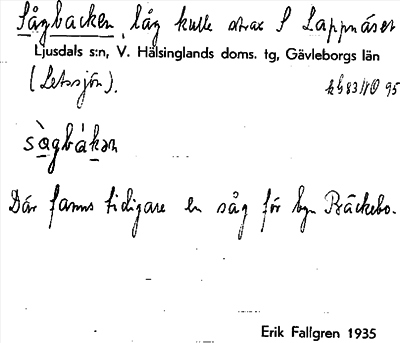 Sågbacken, låg kulle strax S Lappnäset
Ljusdals s:n, V. Hälsinglands doms. tg, Gävleborgs län
(Letssjön). 83/180 95
sàgbákən
Där fanns tidigare en såg för byn Bäckebo.
Erik Fallgren 1935